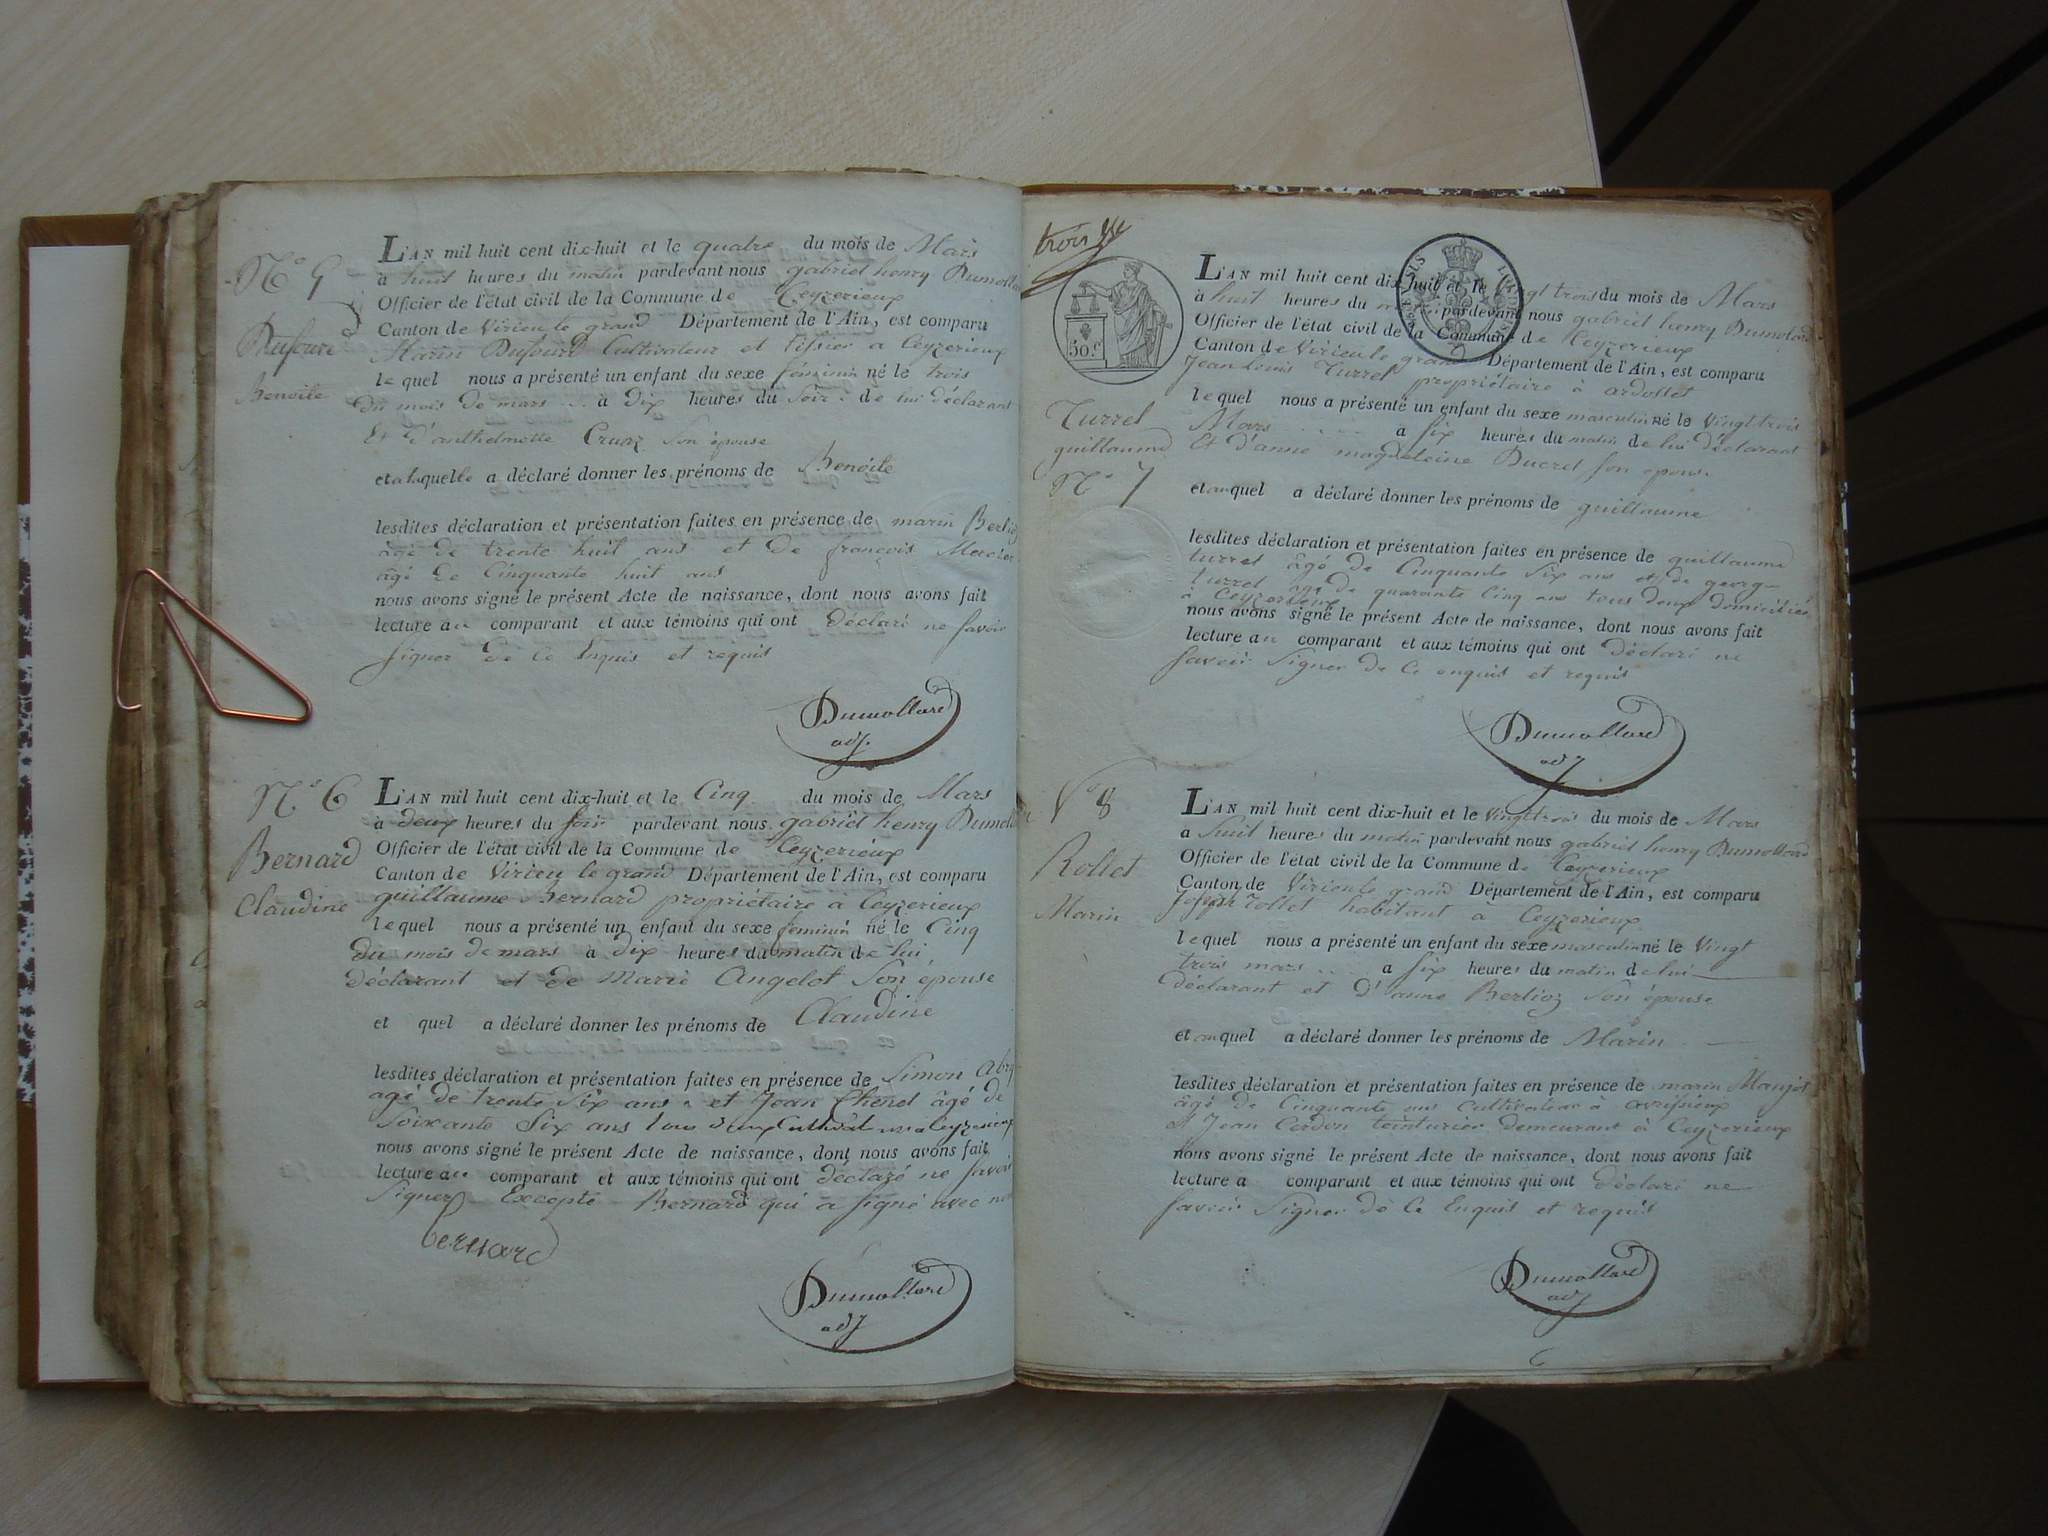 N.o 5
Dufour
Benoite
L'AN mil huit cent dix-huit et le quatre du mois de Mars
à huit heures du matin pardevant nous gabriel henry Dumollard
Officier de l'état civil de la Commune de Ceyzerieux
Canton de Virieu le grand Département de l'Ain, est comparu
Marin Dufour Cultivateur et tissier a Ceyzerieux
lequel nous a présenté un enfant du sexe féminin né le trois
du mois de mars à dix heures du Soir de lui déclarant
Et d'anthelmette Cruaz son épouse
et a laquelle a déclaré donner les prénoms de Benoite
lesdites déclaration et présentation faites en présence de marin Berlioz
âgé de trente huit ans et de françois Mercier
âgé de Cinquante huit ans
nous avons signé le présent Acte de naissance, dont nous avons fait
lecture au comparant et aux témoins qui ont déclaré ne savoir
signer de ce Enquis et requis
Dumollard
adj.
N.o 6
Bernard
Claudine
L'AN mil huit cent dix-huit et le Cinq du mois de Mars
à deux heures du soir pardevant nous gabriel henry Dumollard
Officier de l'état civil de la Commune de Ceyzerieux
Canton de Virieu le grand Département de l'Ain, est comparu
guillaume Bernard propriétaire à Ceyzerieux
lequel nous a présenté un enfant du sexe feminin né le Cinq
du mois de mars à dix heures du matin de lui
déclarant et de Marie Angelot son épouse
et quel a déclaré donner les prénoms de Claudine
lesdites déclaration et présentation faites en présence de Simon
agé de trente Six ans et Jean Chenel âgé de
Soixante Six ans tous deux a Ceyzerieux
nous avons signé le présent Acte de naissance, dont nous avons fait
lecture au comparant et aux témoins qui ont déclaré ne savoir
Signer Excepté Bernard qui a signé avec nous
bernard
Dumollard
adj
trois
50.c
Turrel
guillaume
N.o 7
L'AN mil huit cent dix-huit et le vingt trois du mois de Mars
à huit heures du pardevant nous gabriel henry Dumollard
Officier de l'état civil de la Commune de Ceyzerieux
Canton de Virieu le grand Département de l'Ain, est comparu
Jean Louis Turrel propriétaire à ardosset
lequel nous a présenté un enfant du sexe masculin né le Vingt trois
Mars à six heures du matin de lui déclarant
Et d'anne magdeleine Ducret son épouse
et au quel a déclaré donner les prénoms de guillaume
lesdites déclaration et présentation faites en présence de guillaume
turrel âgé de Cinquante six ans et de george
turrel agé de quarante Cinq ans tous deux domiciliés
à Ceyzerieux
nous avons signé le présent Acte de naissance, dont nous avons fait
lecture au comparant et aux témoins qui ont déclaré ne
savoir Signer de Ce enquis et requis
Dumollard
adj
N.o 8
Rollet
Marin
L'AN mil huit cent dix-huit et le Vingt trois du mois de Mars
à huit heures du matin pardevant nous gabriel henry Dumollard
Officier de l'état civil de la Commune de Ceyzerieux
Canton de Virieu le grand Département de l'Ain, est comparu
Joseph rollet habitant a Ceyzerieux
lequel nous a présenté un enfant du sexe masculin né le Vingt
trois mars à six heures du matin de lui
déclarant et d'anne Berlioz Son épouse
et au quel a déclaré donner les prénoms de Marin
lesdites déclaration et présentation faites en présence de marin Maujot
âgé de Cinquante ans cultivateur à avrisieux
et Jean Cerdon teinturier demeurant à Ceyzerieux
nous avons signé le présent Acte de naissance, dont nous avons fait
lecture a comparant et aux témoins qui ont déclaré ne
savoir Signer de Ce Enquis et requis
Dumollard
adj